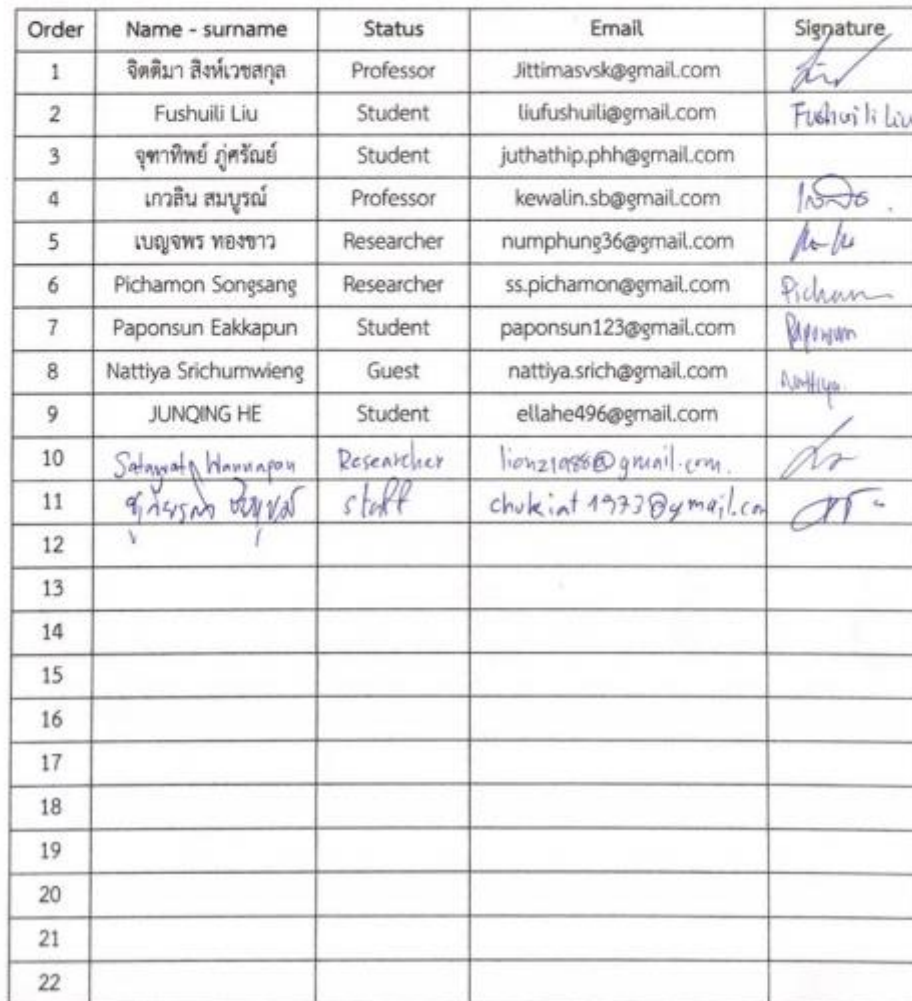 Order Name - surname Status Email Signature
1 จิตติมา สิงห์เวชสกุล Professor Jittimasvsk@gmail.com
2 Fushuili Liu Student liufushuili@gmail.com Fushuili Liu
3 จุฑาทิพย์ ภู่ศรัณย์ Student juthathip.phh@gmail.com
4 เกวลิน สมบูรณ์ Professor kewalin.sb@gmail.com
5 เบญจพร ทองขาว Researcher numphung36@gmail.com
6 Pichamon Songsang Researcher ss.pichamon@gmail.com
7 Paponsun Eakkapun Student paponsun123@gmail.com Paponsun
8 Nattiya Srichumwieng Guest nattiya.srich@gmail.com Nattiya
9 JUNQING HE Student ellahe496@gmail.com
10 Researcher
11 staff
12
13
14
15
16
17
18
19
20
21
22